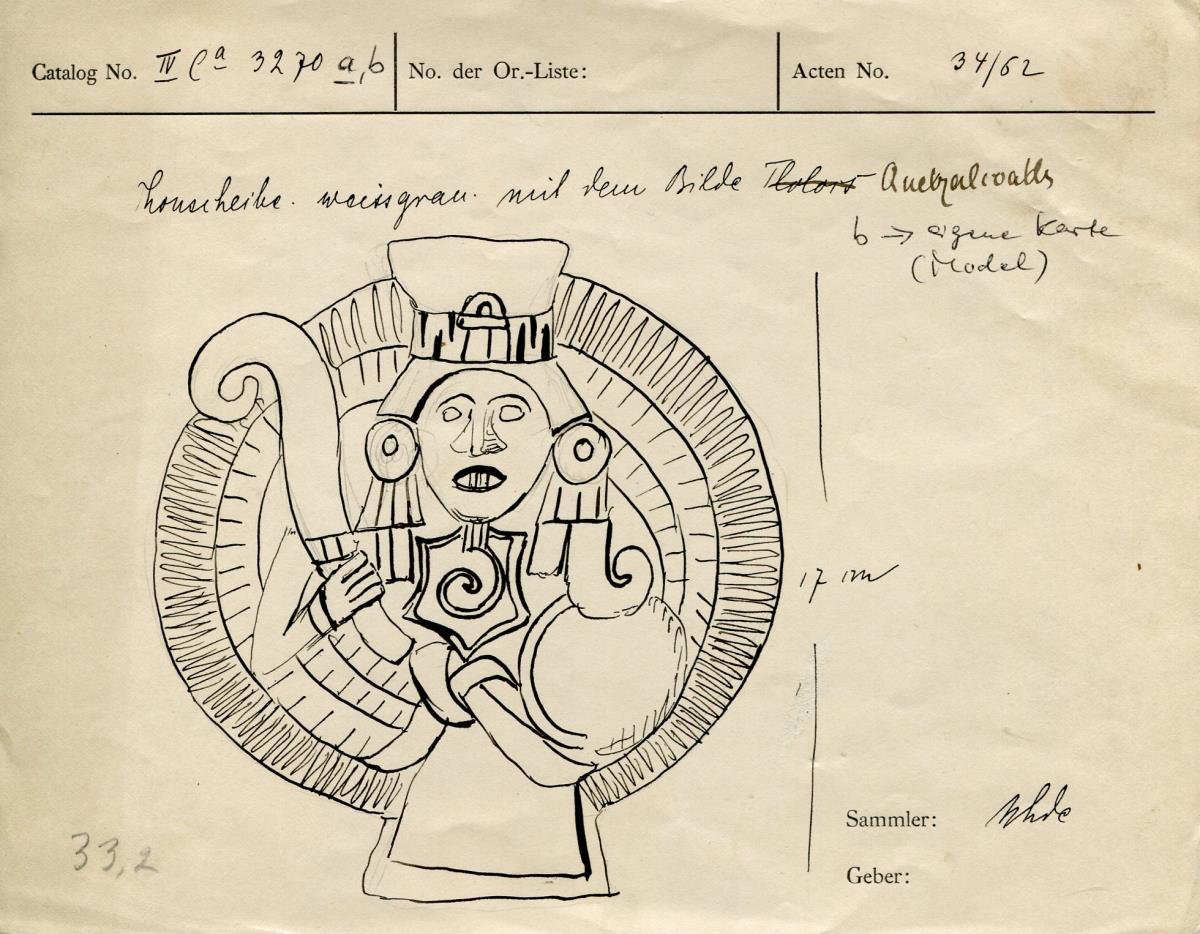 Catalog No. IV Ca 3270 a, b No. der Or.-Liste: Acten No. 34/62
Thonscheibe. weissgrau. mit dem Bilde Tlalocs Quetzalcoatls
b → eigene Karte
(Model)
17 cm
Sammler: Uhde
Geber:
33,2